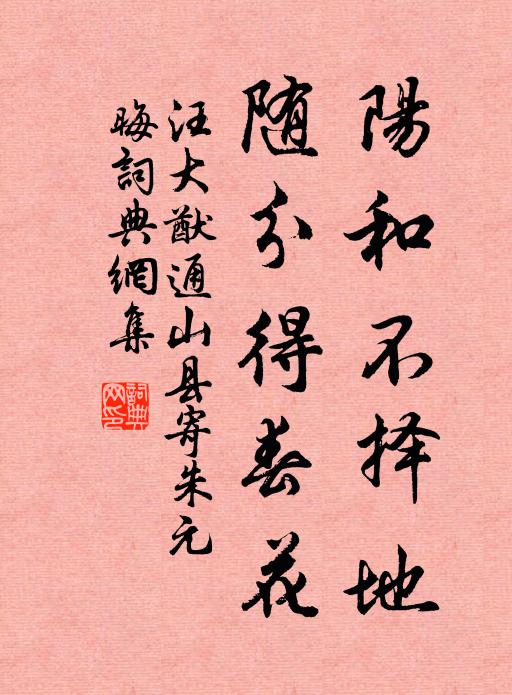 陽和不择地
随分得春花
汪大猷通山县寄朱元
晦詞典網集
詞典
网印